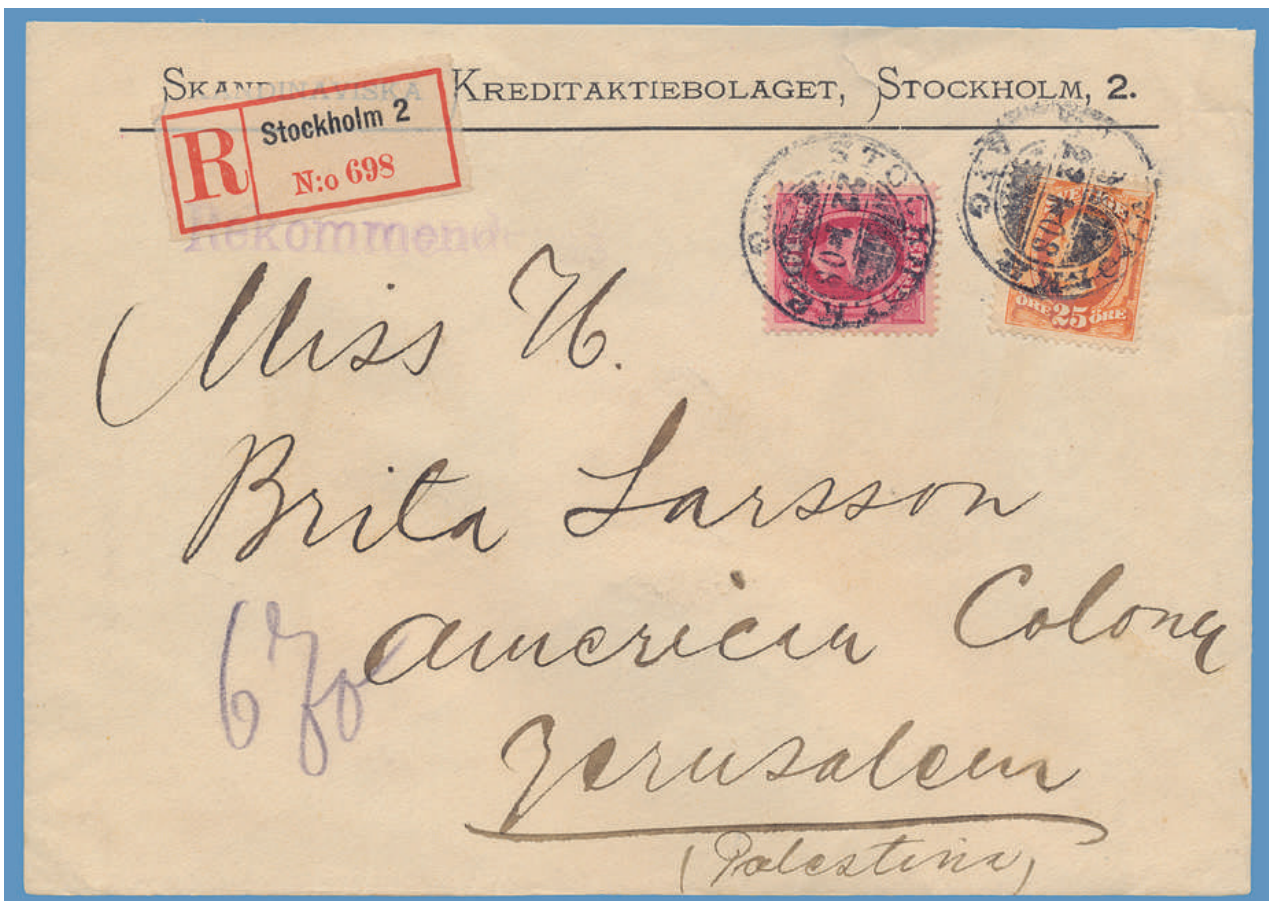 SKANDINAVISKA KREDITAKTIEBOLAGET, STOCKHOLM, 2.
R
Stockholm 2
N:o 698
Rekommend
ÖRE 25 ÖRE
Miss H.
Brita Larsson
American Colony
Jerusalem
(Palestina)